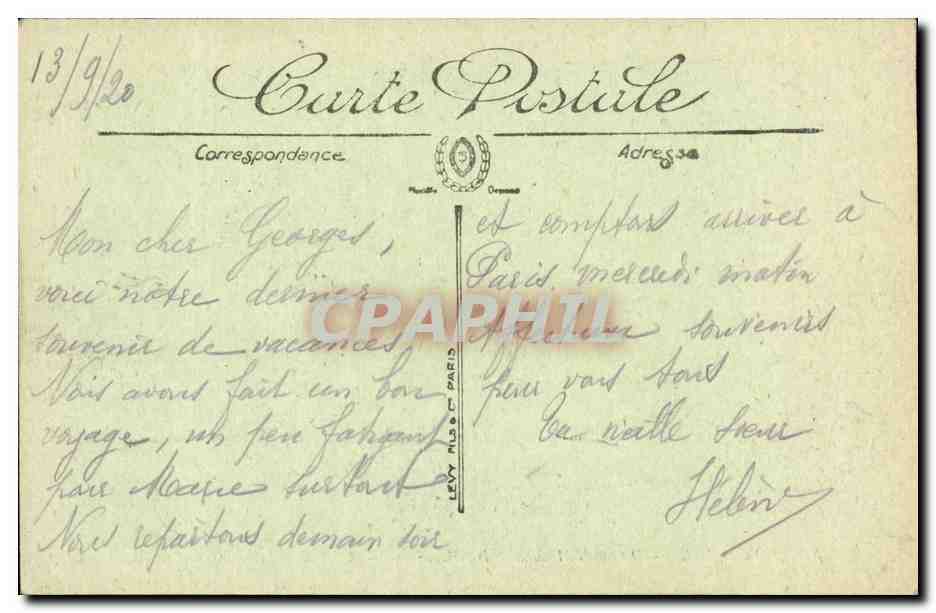 13/9/20
Carte Postale
Correspondance
Adresse
Mon cher Georges,
voici notre dernier
souvenir de vacances
Nous avons fait un bon
voyage, un peu fatigant
pour Marie surtout
Nous repartons demain soir
LEVY FILS & Cie PARIS
et comptons arriver à
Paris mercredi matin
souvenirs
pour vous tous
Ta vieille sœur
Hélène
CPAPHIL